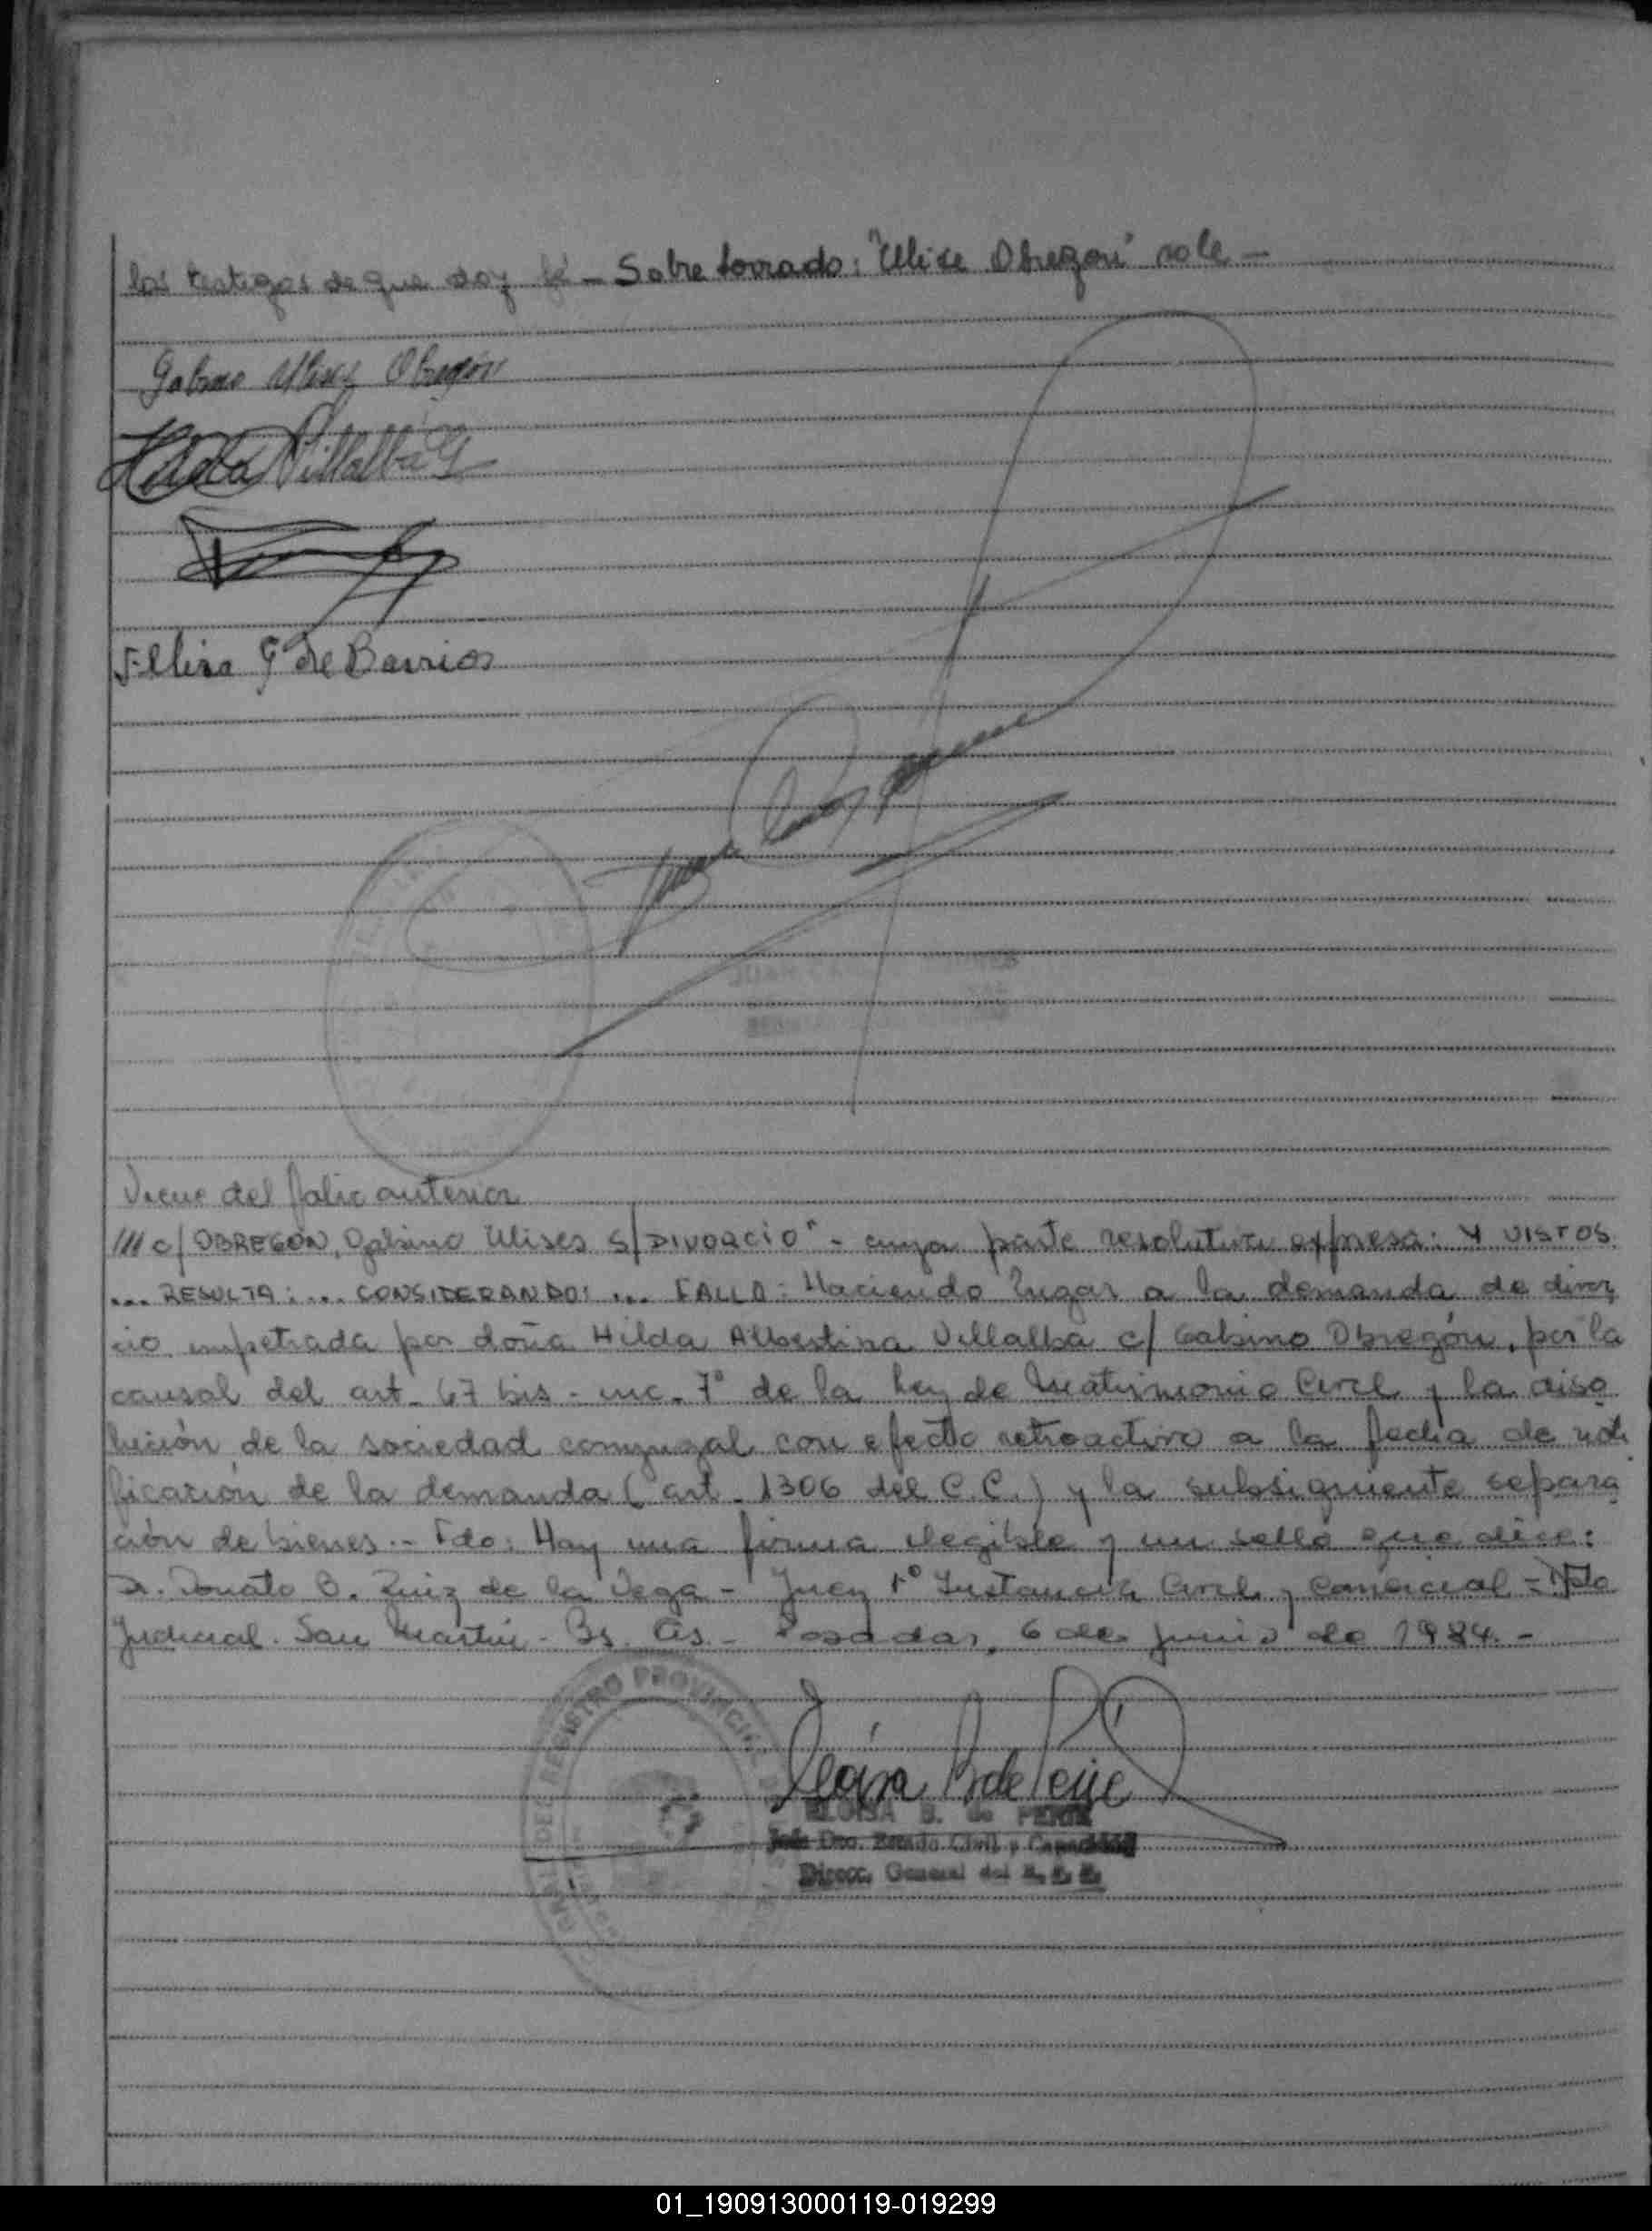 los testigos de que doy fé — Sobre borrado: "Ulise Obregon" vale —
Gabino Ulises Obregón
Hilda Villalba G
F. Elisa G de Barrios
JUAN CA
Viene del folio anterior
/// c/ OBREGON, Gabino Ulises S/DIVORCIO" - cuya parte resolutiva expresa: Y VISTOS
... RESULTA: ... CONSIDERANDO: ... FALLO: Haciendo lugar a la demanda de divor
cio impetrada por doña Hilda Albertina Villalba c/ Gabino Obregón, por la
causal del art. 67 bis - inc. 7° de la Ley de Matrimonio Civil y la diso
lución de la sociedad conyugal con efecto retroactivo a la fecha de noti
ficación de la demanda (art. 1306 del C.C.) y la subsiguiente separa
ción de bienes.- Fdo: Hay una firma ilegible y un sello que dice:
Dr. Donato B. Ruiz de la Vega - Juez 1° Instancia Civil y Comercial - Dpto
Judicial. San Martín - Bs. As. - Posadas, 6 de junio de 1984.-
REGISTRO PROVINCIAL
ELOISA B. de
Jefe Dto. Estado Civil y Capacidad
Direcc. General del R. P. P.
01_190913000119-019299